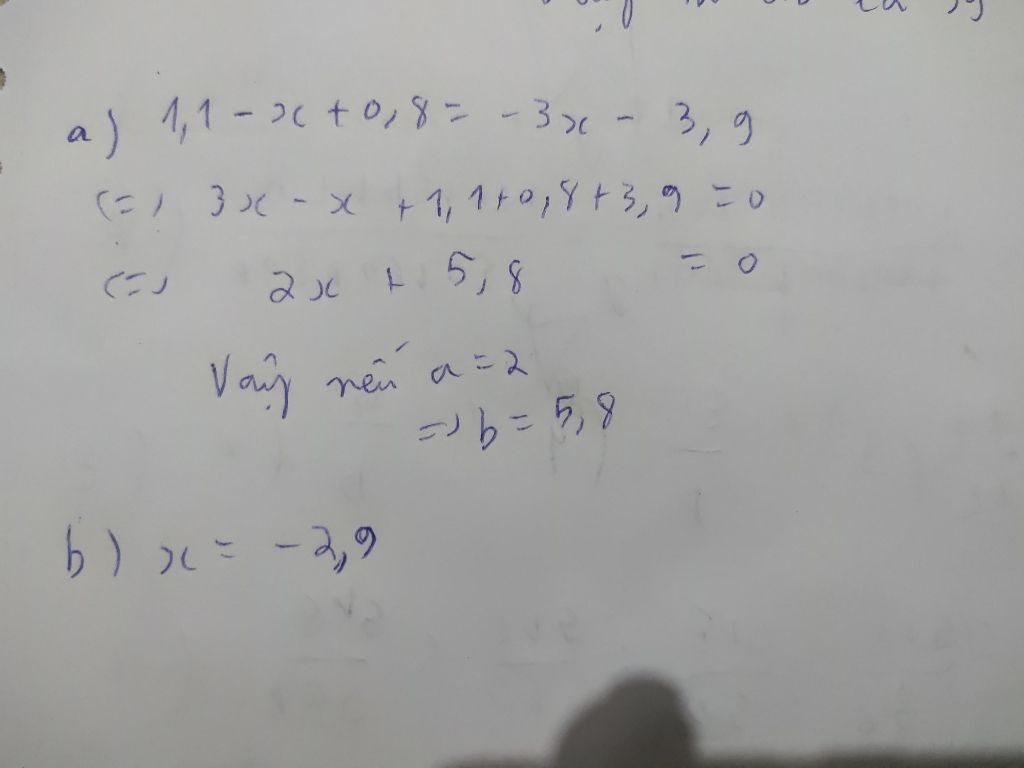 a) 1,1 - x + 0,8 = -3x - 3,9
<=> 3x - x + 1,1 + 0,8 + 3,9 = 0
<=> 2x + 5,8 = 0
Vậy nếu a = 2
=> b = 5,8
b) x = -2,9